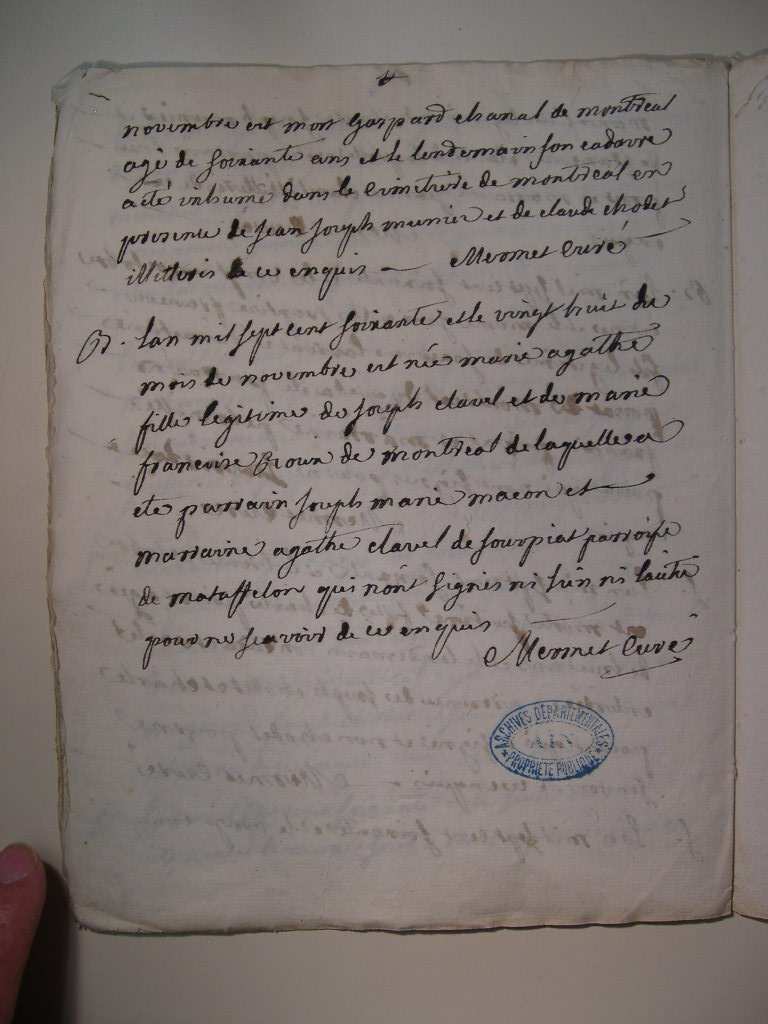 novembre est mort Gaspard chanal de montreal
agé de soixante ans et le lendemain son cadavre
a eté inhumé dans le cimetiere de montreal en
presence de jean joseph munier et de claude chodet
illitteris de ce enquis Mermet Curé
B. lan mil sept cent soixante et le vingt huit du
mois de novembre est née marie agathe
fille legitime de joseph clavel et de marie
francoise de montreal de laquelle a
ete parrain joseph marie macon et
marraine agathe clavel de sourpiat parroisse
de mataffelon qui nont signés ni lun ni lautre
pour ne scavoir de ce enquis
Mermet Curé
ARCHIVES DÉPARTEMENTALES
AIN
PROPRIÉTÉ PUBLIQUE